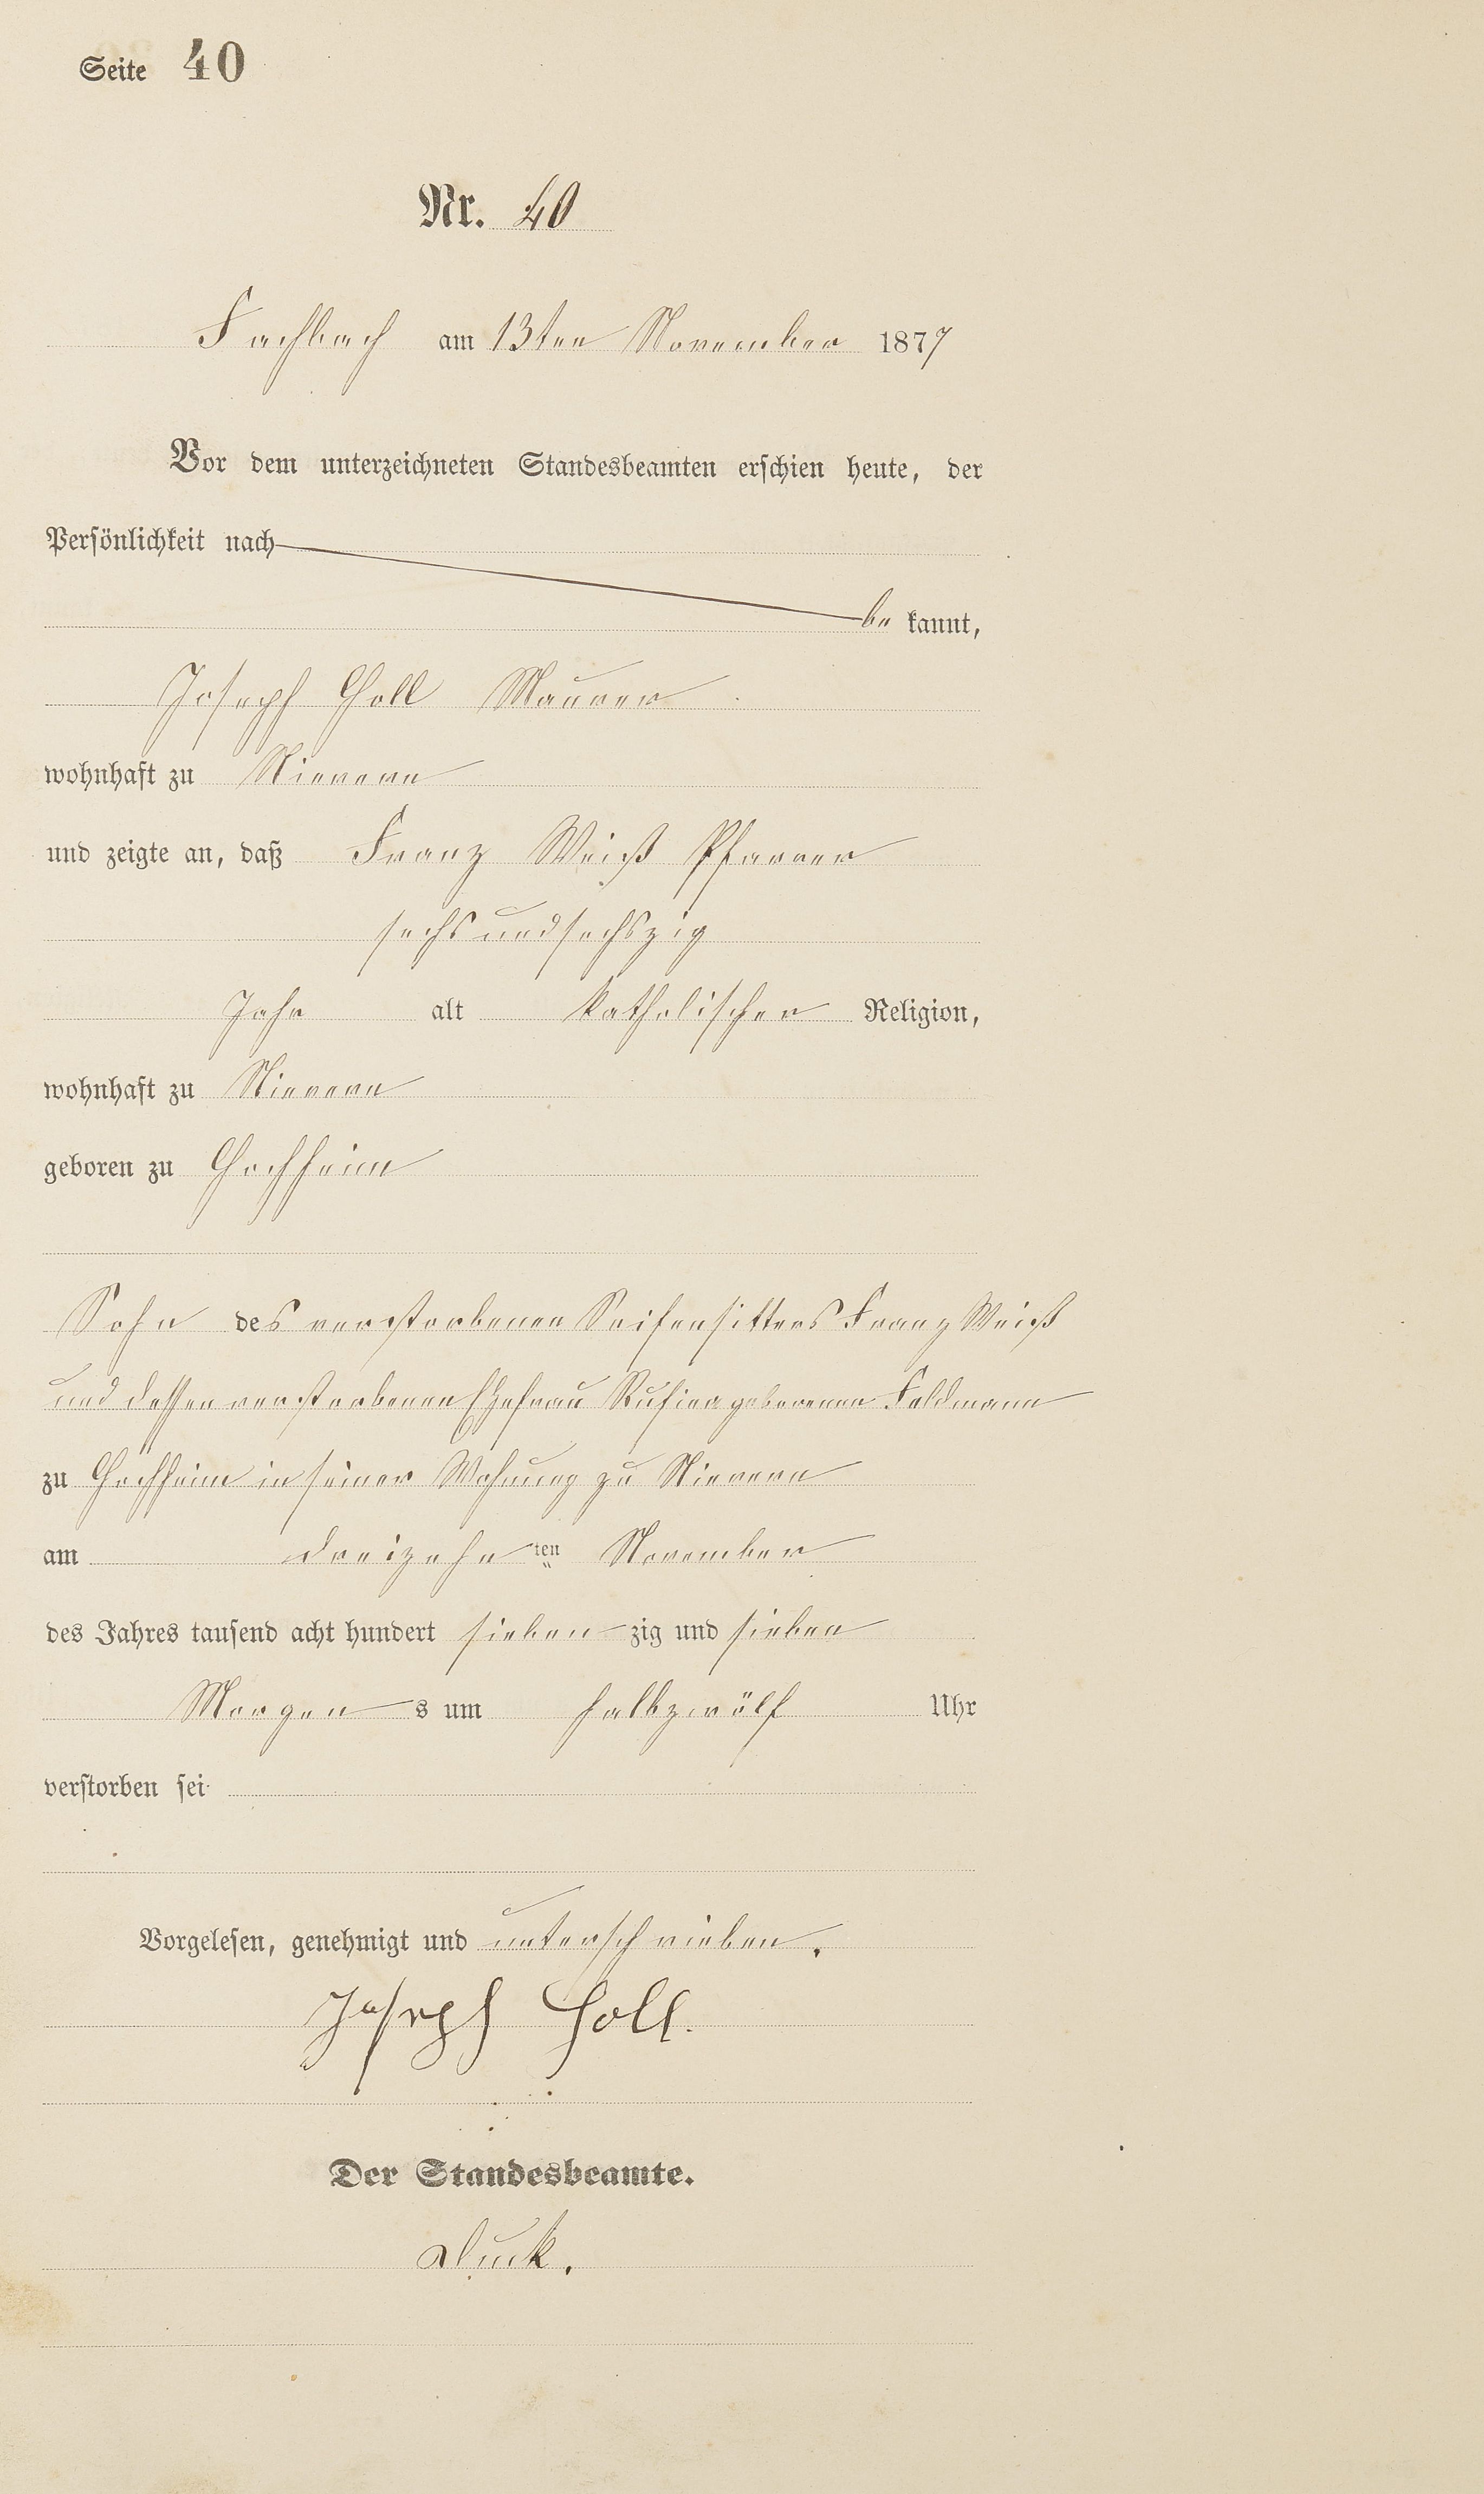 Seite 40
Nr. 40
Fachbach am 13ten November 1877
Vor dem unterzeichneten Standesbeamten erschien heute, der
Persönlichkeit nach
be kannt,
Joseph Holl Maurer
wohnhaft zu Nievern
und zeigte an, daß Franz Weiß Pfarrer
sechsundsechszig
Jahr alt katholischer Religion,
wohnhaft zu Nievern
geboren zu Hochheim
Sohn des verstorbenen Seifensitters Franz Weiß
und dessen verstorbenen Ehefrau Rufina geborenen Feldmann
zu Hochheim in seiner Wohnung zu Nievern
am dreizehn ten November
des Jahres tausend acht hundert sieben zig und sieben
Morgen s um halbzwölf Uhr
verstorben sei
Vorgelesen, genehmigt und unterschrieben.
Joseph Holl.
Der Standesbeamte.
Duck.